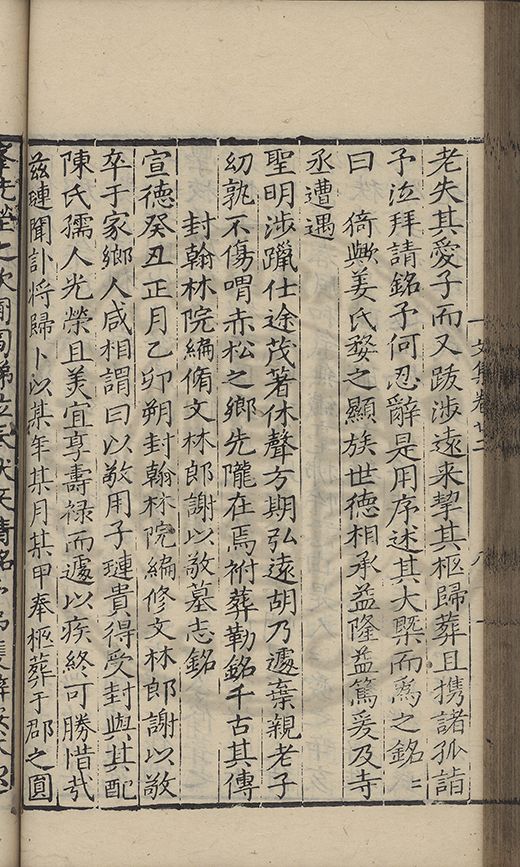 文集卷廿二
八
老失其愛子而又跋涉遠来挈其柩歸葬且携諸孤詣
予泣拜請銘予何忍辭是用序述其大槩而為之銘〻
曰　猗歟姜氏婺之顯族世德相承益隆益篤爰及寺
丞遭遇
聖明涉躐仕途茂著休聲方期弘遠胡乃遽棄親老子
幼孰不傷喟赤松之鄉先隴在焉祔葬勒銘千古其傳
封翰林院編脩文林郎謝以敬墓志銘
宣德癸丑正月乙卯朔封翰林院編修文林郎謝以敬
卒于家鄉人咸相謂曰以敬用子璉貴得受封與其配
陳氏孺人光榮且美宜享壽禄而遽以疾終可勝惜㢤
兹璉聞訃将歸卜以某年某月某甲奉柩葬于郡之圓